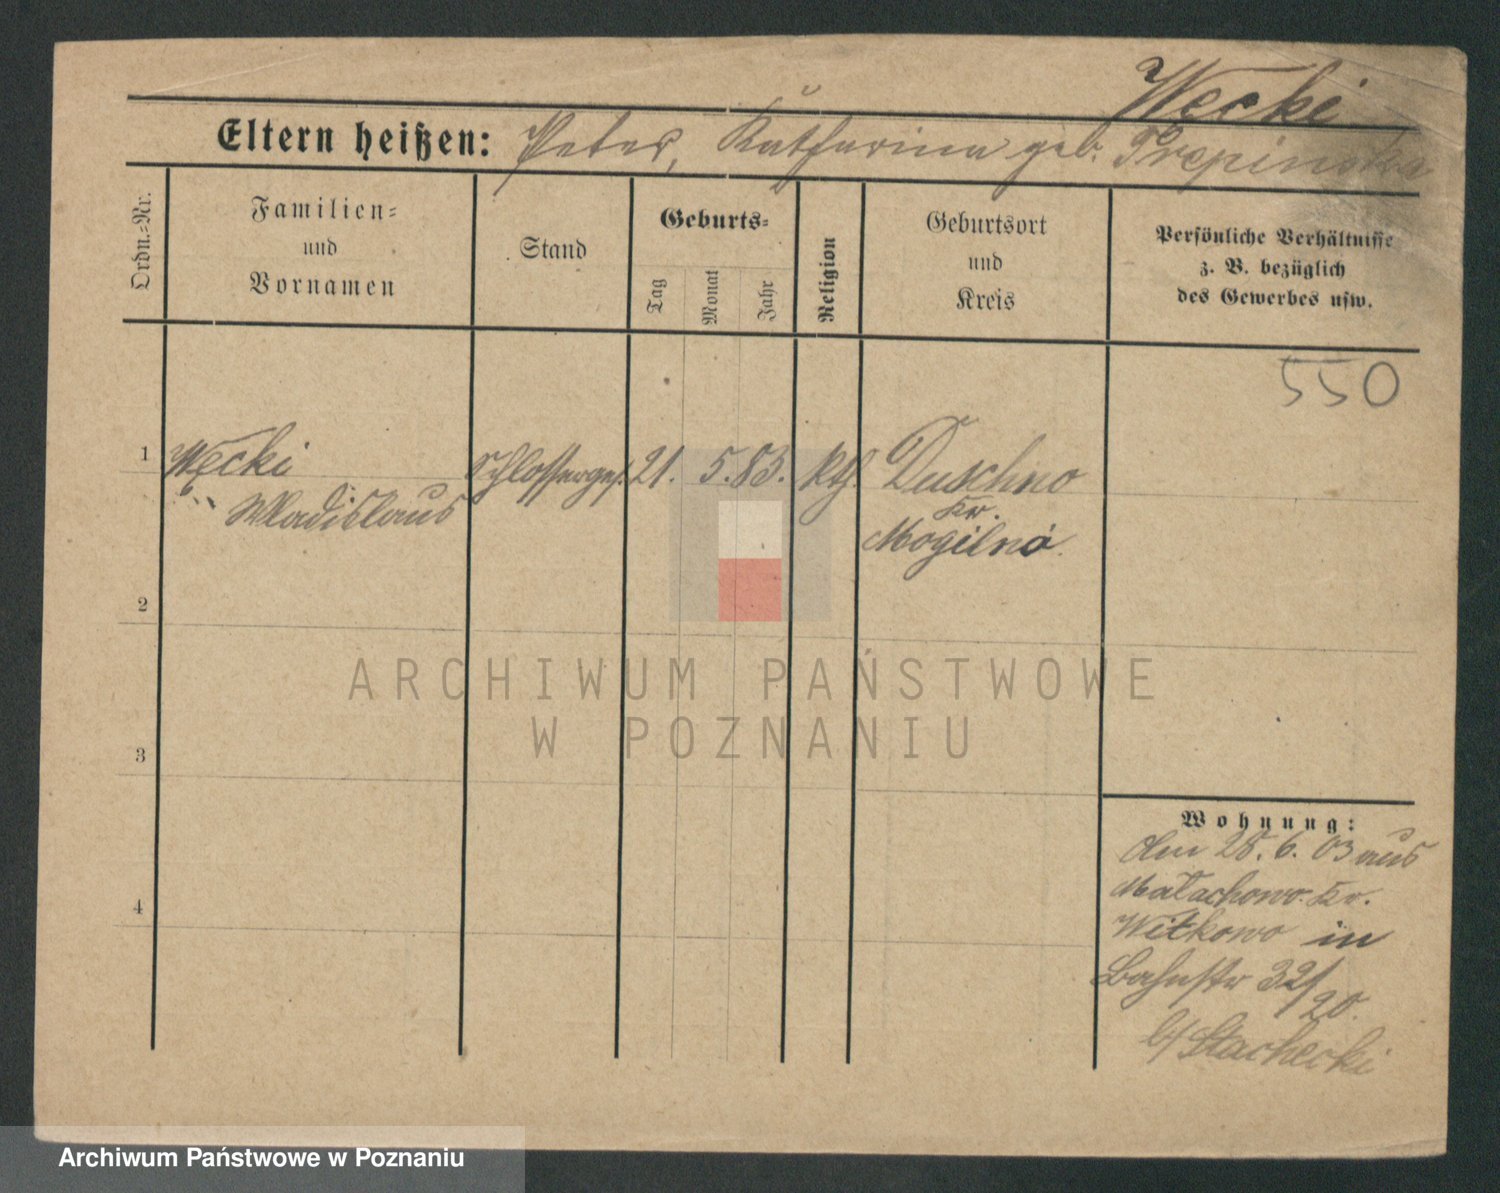 Wecki
Eltern heißen: Peter, Katharina geb.
Ordn.=Nr.
Familien=
und
Vornamen
Stand
Geburts=
Tag
Monat
Jahr
Religion
Geburtsort
und
Kreis
Persönliche Verhältnisse
z. B. bezüglich
des Gewerbes usw.
550
1 Węcki Schlosserges. 21. 5. 83. kth. Duschno
Wladislaus Kr.
Mogilno
2
3
4
Wohnung:
den 25. 6. 03 aus
Małachowo Kr.
Witkowo in
Bahnstr 32/
20.
b/ Stachecki
ARCHIWUM PAŃSTWOWE
W POZNANIU
Archiwum Państwowe w Poznaniu